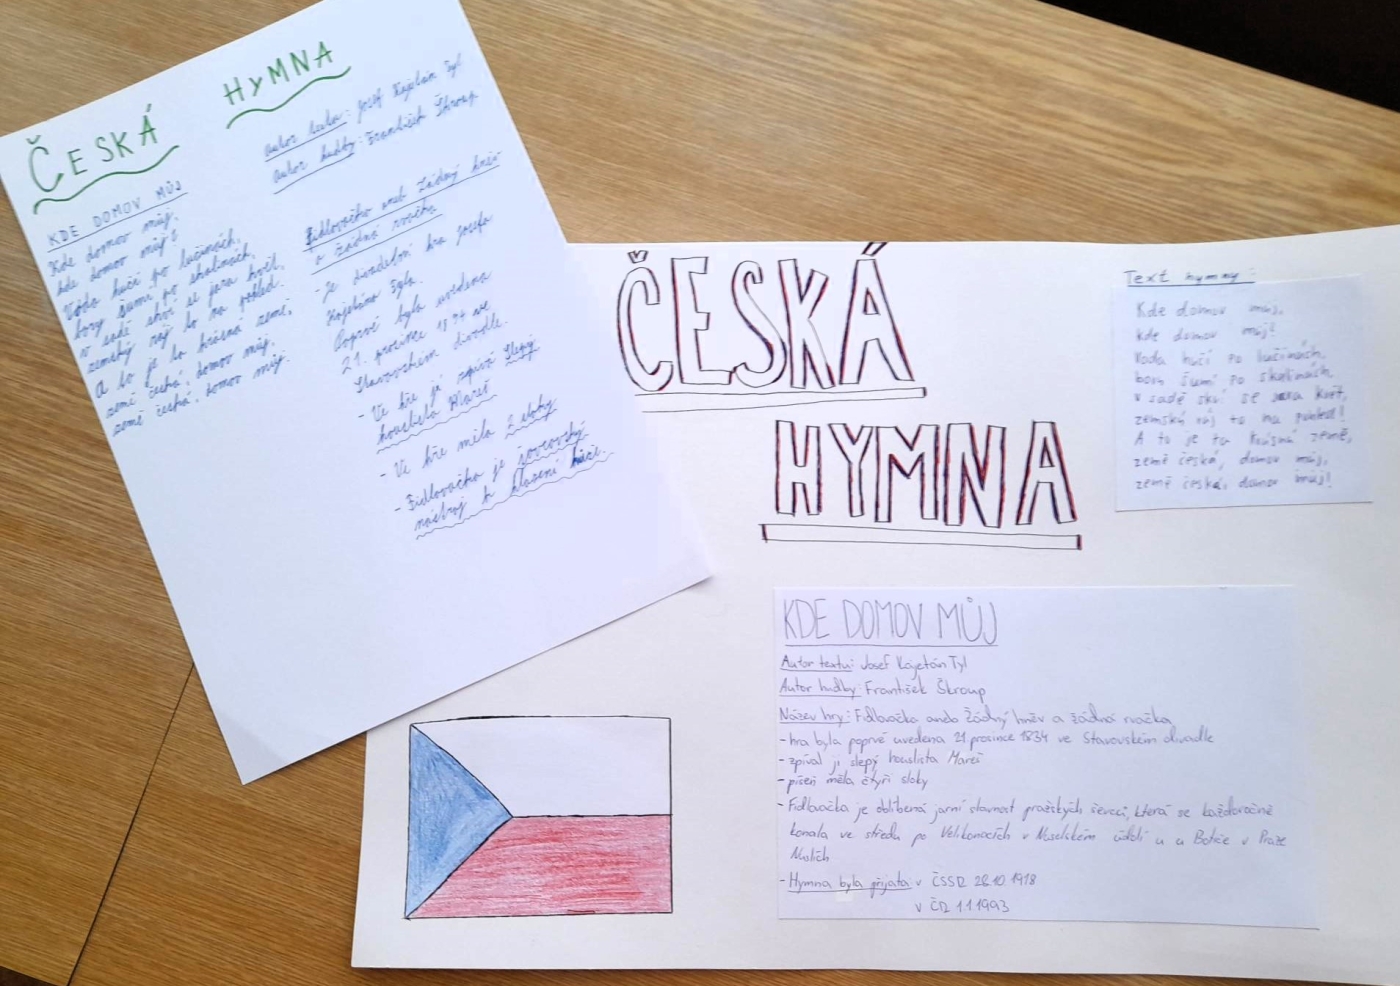 ČESKÁ HYMNA
KDE DOMOV MŮJ
Kde domov můj,
kde domov můj?
Voda hučí po lučinách,
bory šumí po skalinách,
v sadě skví se jara květ,
zemský ráj to na pohled.
A to je ta krásná země,
země česká, domov můj,
země česká, domov můj.
Autor textu: Josef Kajetán Tyl
Autor hudby: František Škroup
Fidlovačka aneb žádný hněv
a žádná rvačka
- Je divadelní hra Josefa
Kajetána Tyla.
Poprvé byla uvedena
21. prosince 1834 ve
Stavovském divadle.
- Ve hře ji zpívá slepý
houslista Mareš
- Ve hře měla 2 sloky
- Fidlovačka je ševcovský
nástroj k hlazení kůže.
ČESKÁ
HYMNA
Text hymny:
Kde domov můj,
kde domov můj?
Voda hučí po lučinách,
bory šumí po skalinách,
v sadě skví se jara květ,
zemský ráj to na pohled!
A to je ta krásná země,
země česká, domov můj,
země česká, domov můj!
KDE DOMOV MŮJ
Autor textu: Josef Kajetán Tyl
Autor hudby: František Škroup
Název hry: Fidlovačka anebo Žádný hněv a žádná rvačka
- hra byla poprvé uvedena 21 prosince 1834 ve Stavovském divadle
- zpíval ji slepý houslista Mareš
- píseň měla čtyři sloky
- Fidlovačka je oblíbená jarní slavnost pražských ševců, která se každoročně
konala ve středu po Velikonocích v Nuselském údolí u Botiče v Praze
Nuslích
- Hymna byla přijata v ČSSR 28.10 1918
v ČR 1.1 1993